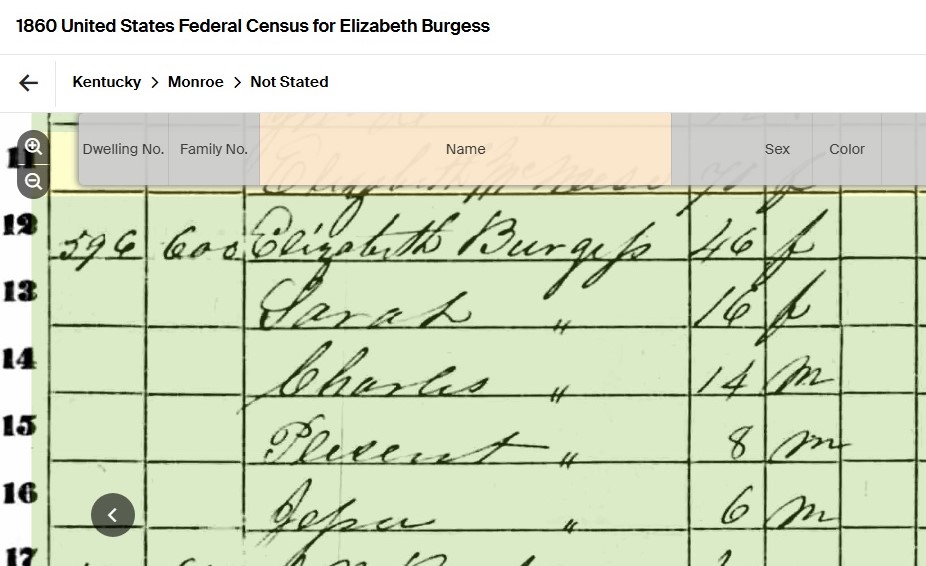 1860 United States Federal Census for Elizabeth Burgess
Kentucky > Monroe > Not Stated
Dwelling No. Family No. Name Sex Color
11 Elizabeth
12 596 600 Elizabeth Burgess 46 f
13 Sarah " 16 f
14 Charles " 14 m
15 Plesent " 8 m
16 " 6 m
17